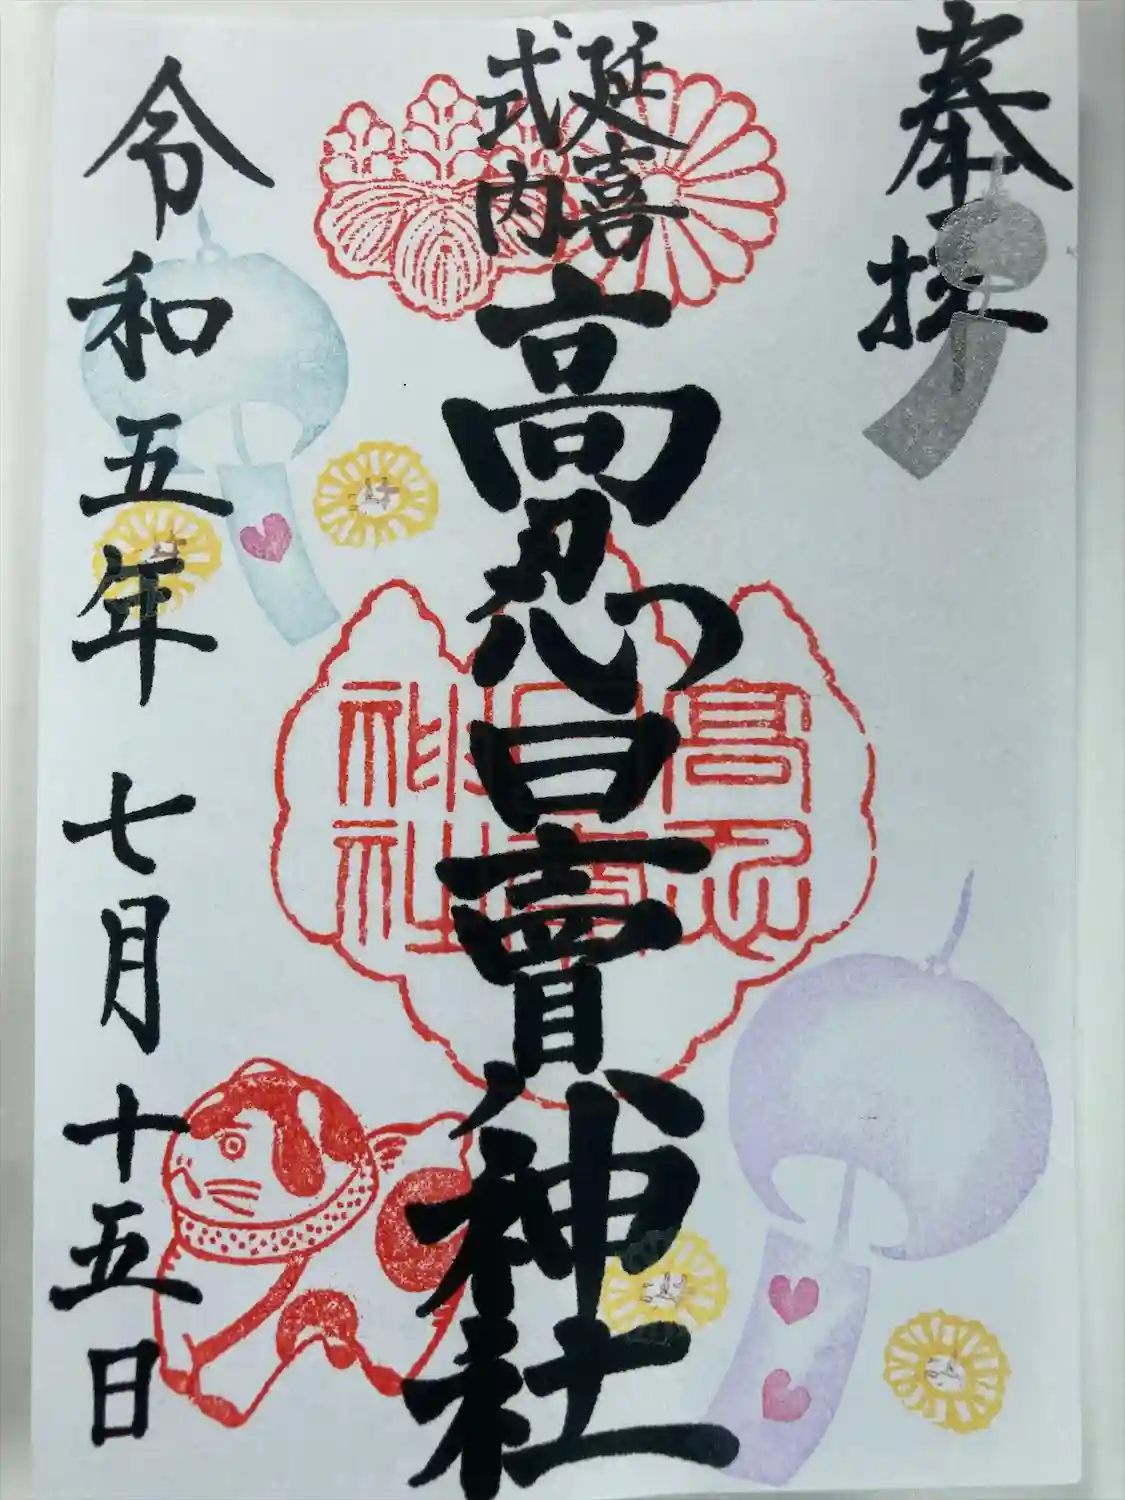 奉拝
延喜
式内
高忍日賣神社
高忍
日賣
神社
令和五年 七月十五日